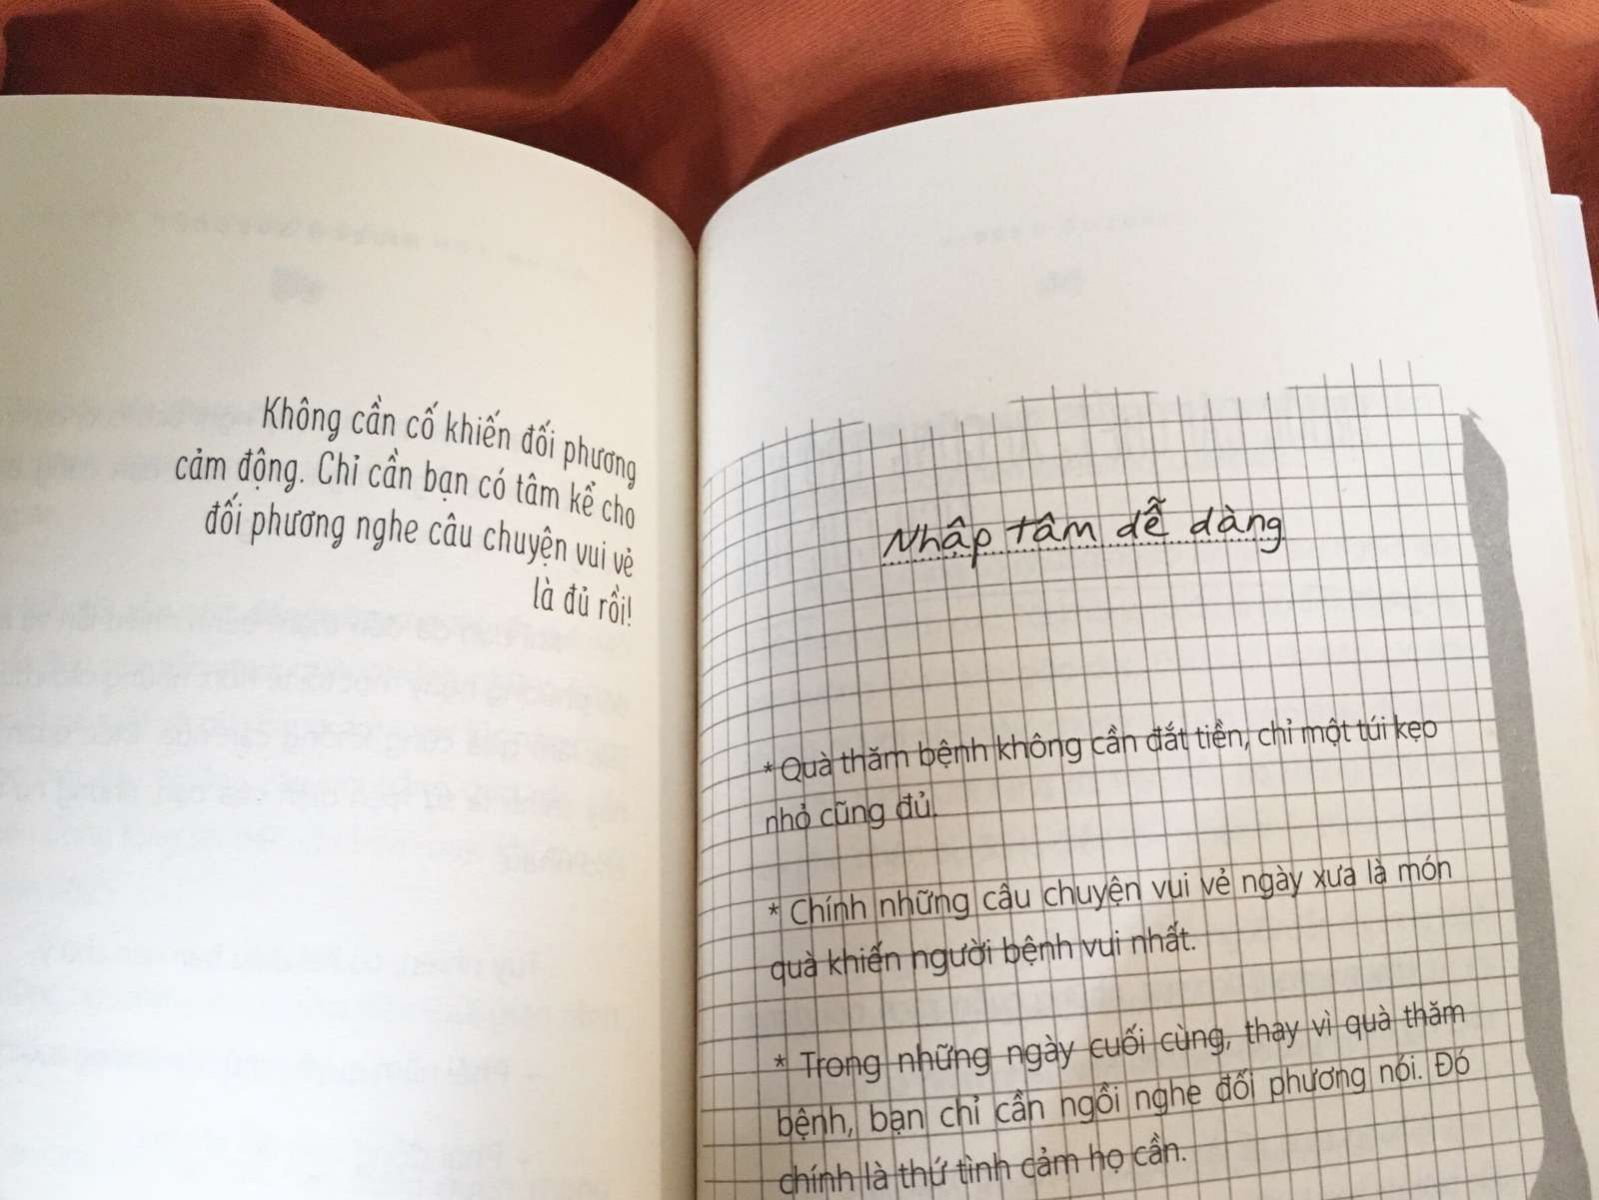 Không cần cố khiến đối phương
cảm động. Chỉ cần bạn có tâm kể cho
đối phương nghe câu chuyện vui vẻ
là đủ rồi!
Nhập tâm dễ dàng
* Quà thăm bệnh không cần đắt tiền, chỉ một túi kẹo
nhỏ cũng đủ.
* Chính những câu chuyện vui vẻ ngày xưa là món
quà khiến người bệnh vui nhất.
* Trong những ngày cuối cùng, thay vì quà thăm
bệnh, bạn chỉ cần ngồi nghe đối phương nói. Đó
chính là thứ tình cảm họ cần.